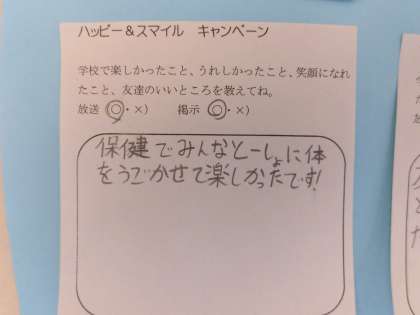 ハッピー＆スマイル　キャンペーン
学校で楽しかったこと、うれしかったこと、笑顔になれ
たこと、友達のいいところを教えてね。
放送（◎・×）　掲示（◎・×）
保健でみんなと一しょに体
をうごかせて楽しかったです!